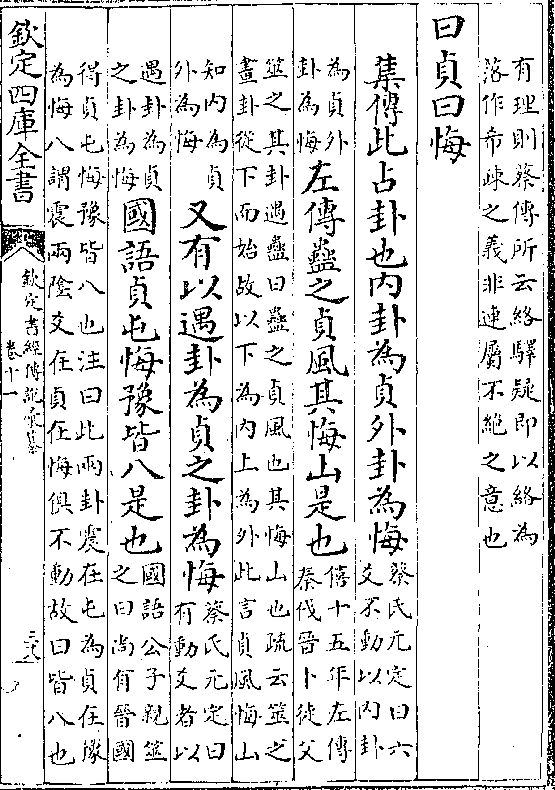 有理則蔡傳所云絡驛疑即以絡為
落作希疎之義非連屬不絶之意也
曰貞曰悔
集傳此占卦也内卦為貞外卦為悔
蔡氏元定曰六
爻不動以内卦
為貞外
卦為悔
左傳蠱之貞風其悔山是也
僖十五年左傳
秦伐晉卜徒父
筮之其卦遇蠱曰蠱之貞風也其悔山也疏云筮之
畫卦從下而始故以下為内上為外此言貞風悔山
知内為貞
外為悔
又有以遇卦為貞之卦為悔
蔡氏元定曰
有動爻者以
遇卦為貞
之卦為悔
國語貞屯悔豫皆八是也
國語公子親筮
之曰尚有晉國
得貞屯悔豫皆八也注曰此兩卦震在屯為貞在豫
為悔八謂震兩陰爻在貞在悔俱不動故曰皆八也
欽定四庫全書
欽定書經傳說彙纂
卷十一